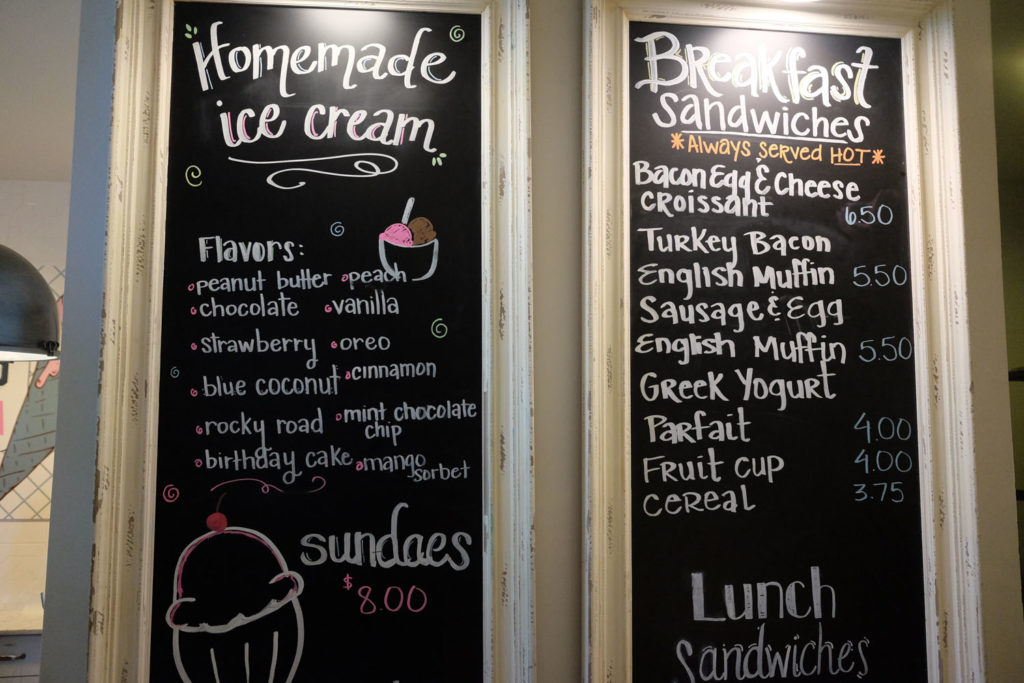 Homemade
ice cream
Flavors:
peanut butter
peach
chocolate
vanilla
strawberry
oreo
blue coconut
cinnamon
rocky road
mint chocolate
chip
birthday cake
mango
sorbet
sundaes
$8.00
Breakfast
Sandwiches
*Always served HOT*
Bacon Egg & Cheese
Croissant 6.50
Turkey Bacon
English Muffin 5.50
Sausage & Egg
English Muffin 5.50
Greek Yogurt
Parfait 4.00
Fruit Cup 4.00
Cereal 3.75
Lunch
Sandwiches